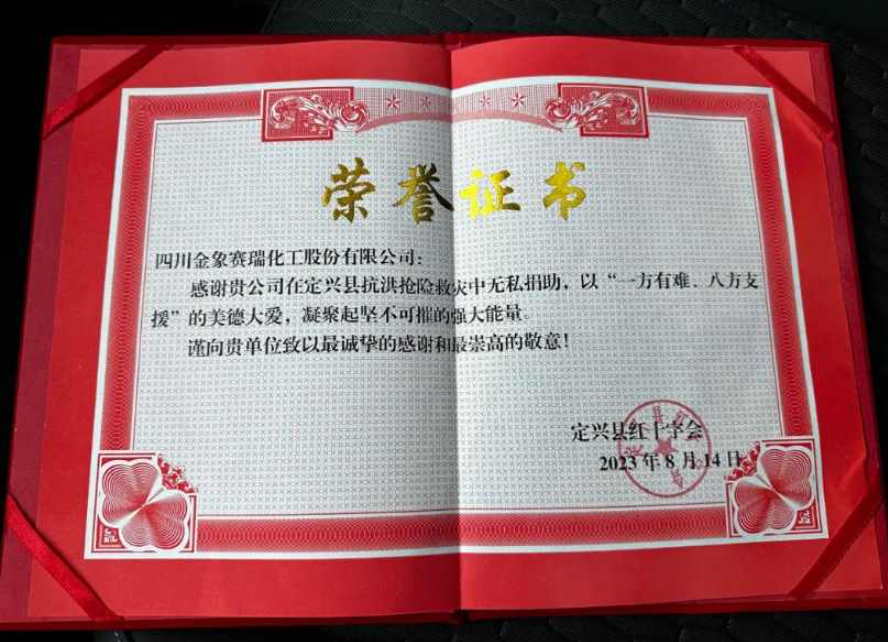 荣誉证书
四川金象赛瑞化工股份有限公司：
感谢贵公司在定兴县抗洪抢险救灾中无私捐助，以“一方有难、八方支
援”的美德大爱，凝聚起坚不可摧的强大能量。
谨向贵单位致以最诚挚的感谢和最崇高的敬意！
定兴县红十字会
2023年8月14日